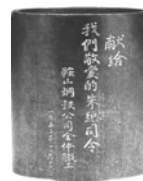 献给
我們敬爱的朱总司令
鞍山鋼鉄公司全体職工